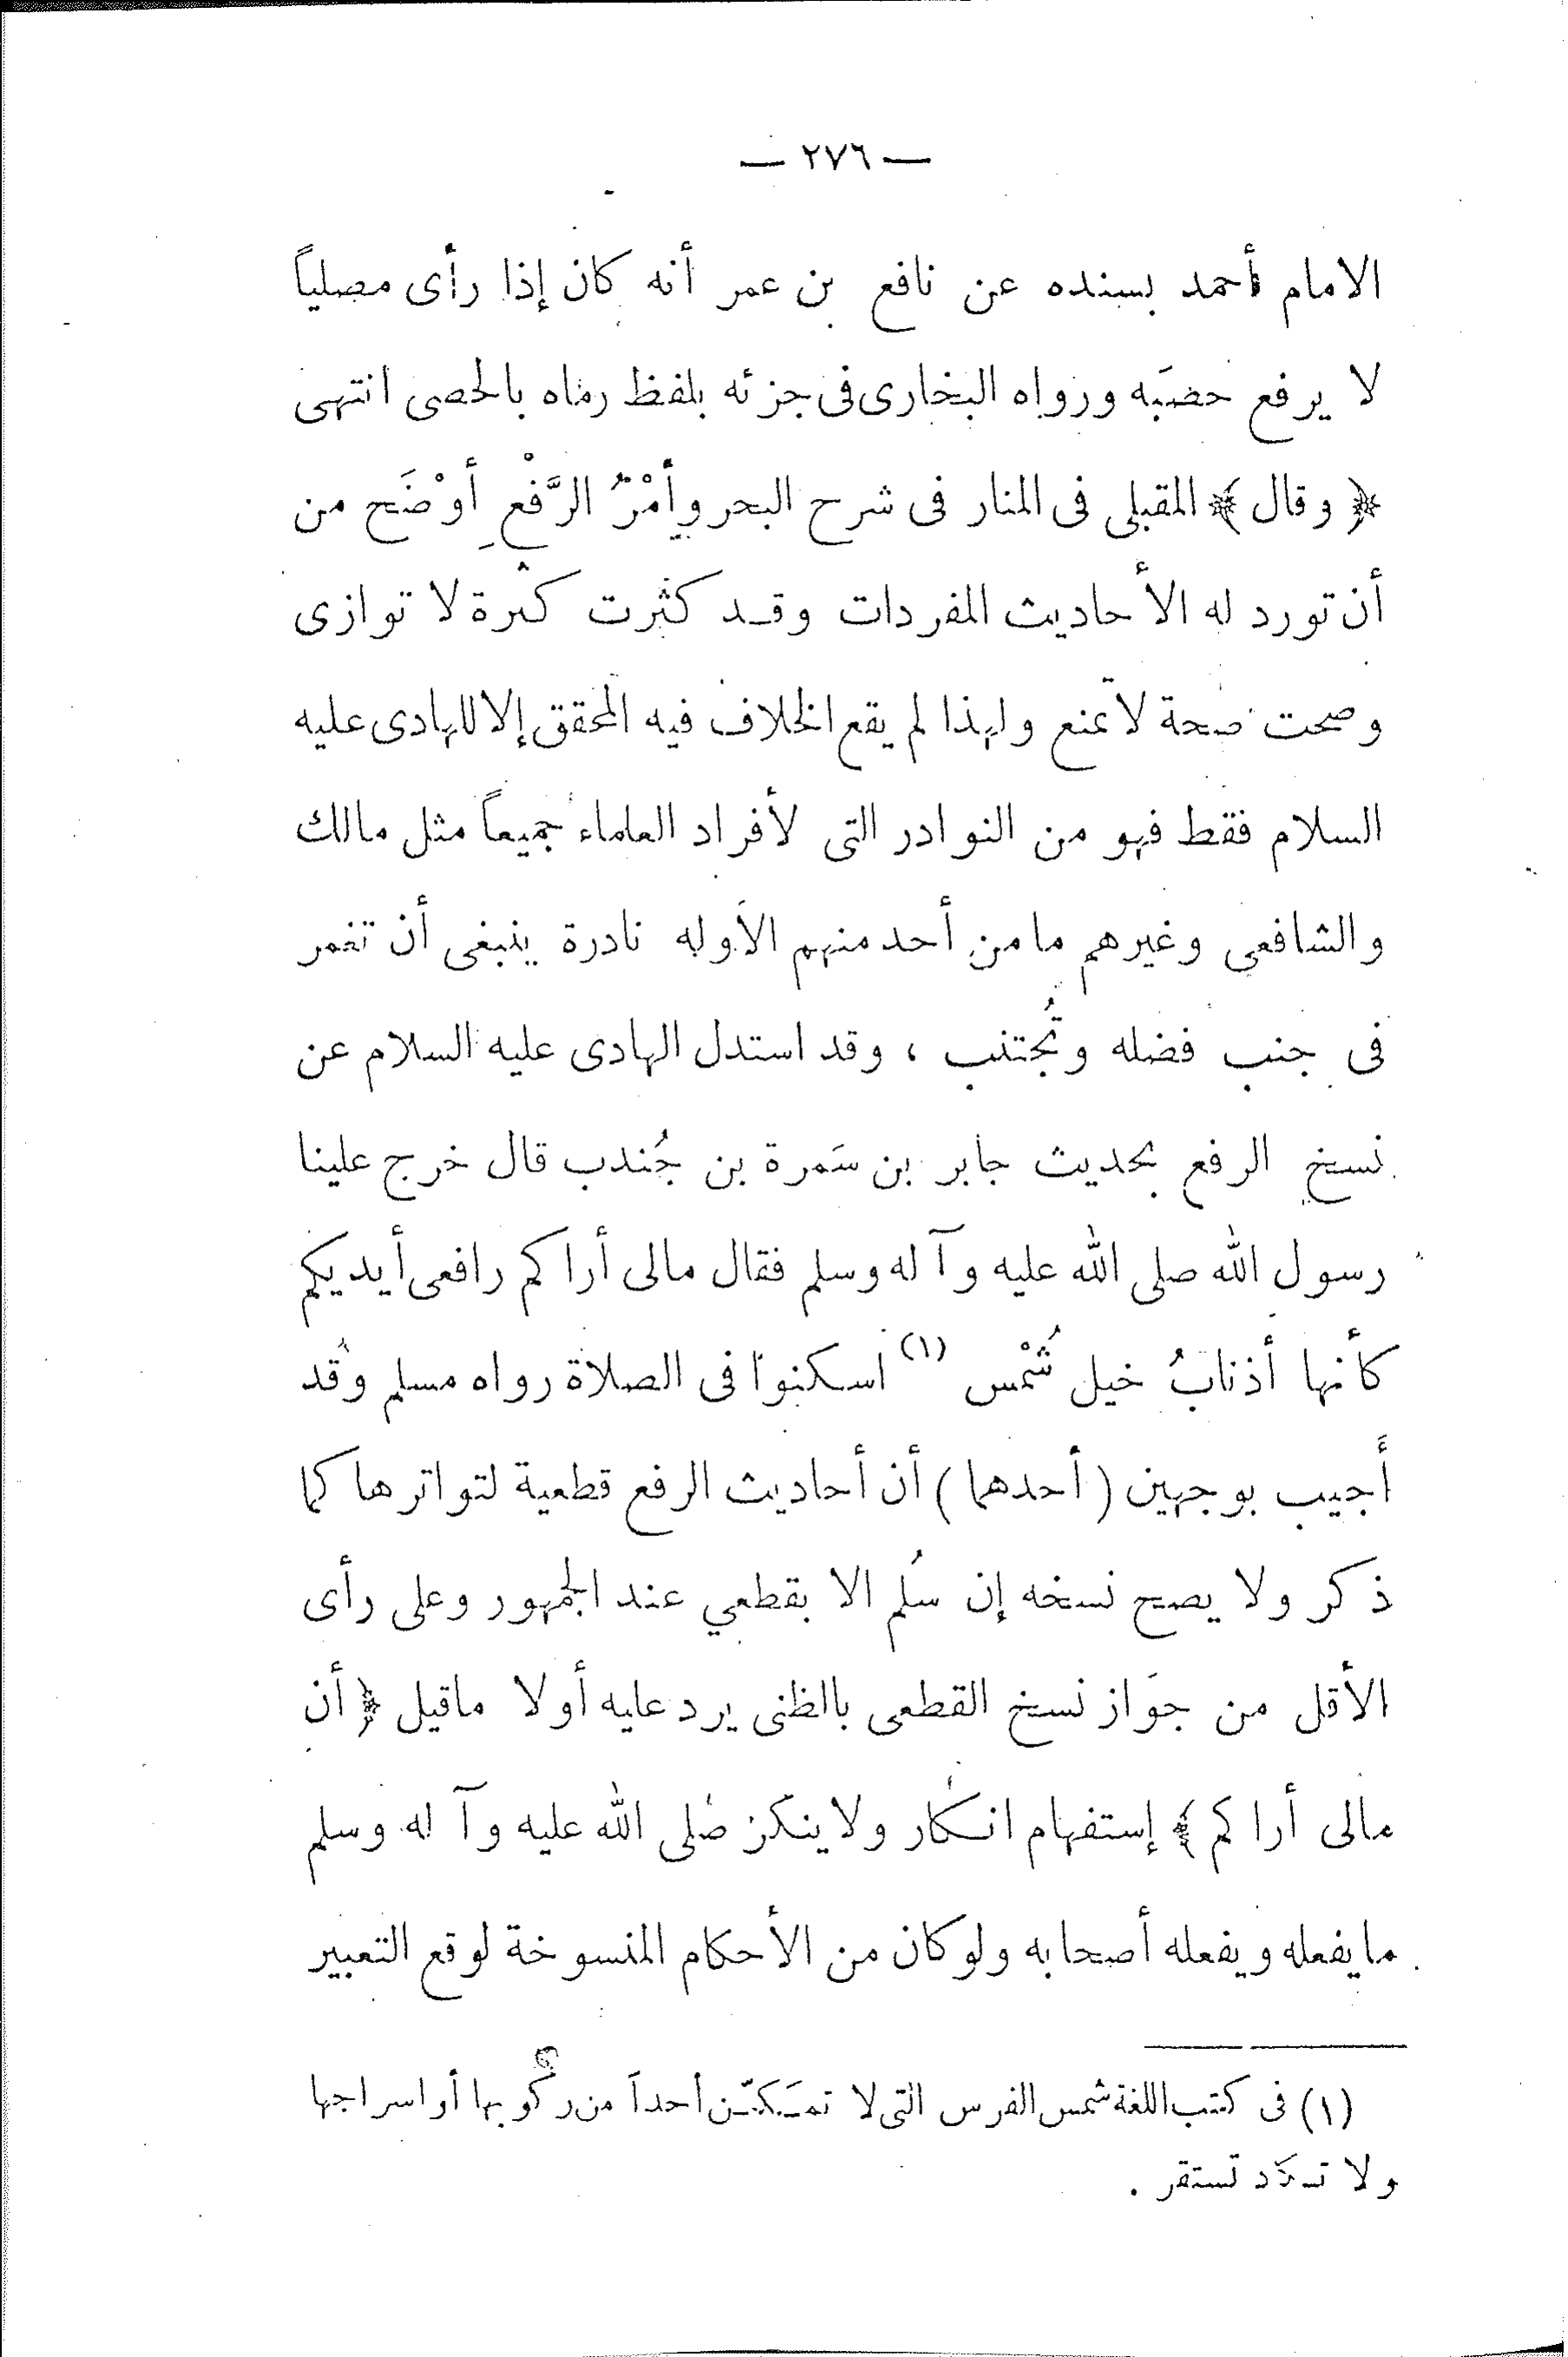 — ٢٧٦ —
الامام أحمد بسنده عن نافع بن عمر أنه كان إذا رأى مصلياً
لا يرفع حصَبَه ورواه البخارى فى جزئه بلفظ رماه بالحصى انتهى
﴿ وقال ﴾ المقبلى فى المنار فى شرح البحر وأمْرُ الرَّفْعِ أوْضَح من
أن تورد له الأحاديث المفردات وقد كثرت كثرة لا توازى
وصحت صحة لا تمنع ولهذا لم يقع الخلاف فيه المحقق إلا للهادى عليه
السلام فقط فهو من النوادر التى لأفراد العلماء جميعاً مثل مالك
والشافعى وغيرهم ما من أحد منهم الا وله نادرة ينبغى أن تغمر
فى جنب فضله وتُجتنب ، وقد استدل الهادى عليه السلام عن
نسخ الرفع بحديث جابر بن سَمرة بن جُندب قال خرج علينا
رسول الله صلى الله عليه وآله وسلم فقال مالى أراكم رافعى أيديكم
كأنها أذنابُ خيل شُمْس (١) اسكنوا فى الصلاة رواه مسلم وقد
أجيب بوجهين ( أحدهما ) أن أحاديث الرفع قطعية لتواترها كما
ذكر ولا يصح نسخه إن سُلم الا بقطعي عند الجمهور وعلى رأى
الأقل من جوَاز نسخ القطعى بالظنى يرد عليه أولا ماقيل ﴿ أن
مالى أراكم ﴾ إستفهام انكار ولا ينكر صلى الله عليه وآله وسلم
ما يفعله ويفعله أصحابه ولو كان من الأحكام المنسوخة لوقع التعبير
(١) فى كتب اللغة شمس الفرس التى لا تمَـكّـن أحداً من ركوبها أو اسراجها
ولا تـكد تستقر .